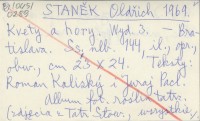 STANĚK Oldrich 1969.
Kvety a hory. Wyd. 3. - Bra-
tislava. Ss. nlb. 144, il., opr.,
obw., cm 23 x 24. Teksty:
Roman Kaliský, Juraj Pacl.
Album fot. roślin tatr.
(zdjęcia z Tatr Słow.), wszystkie,